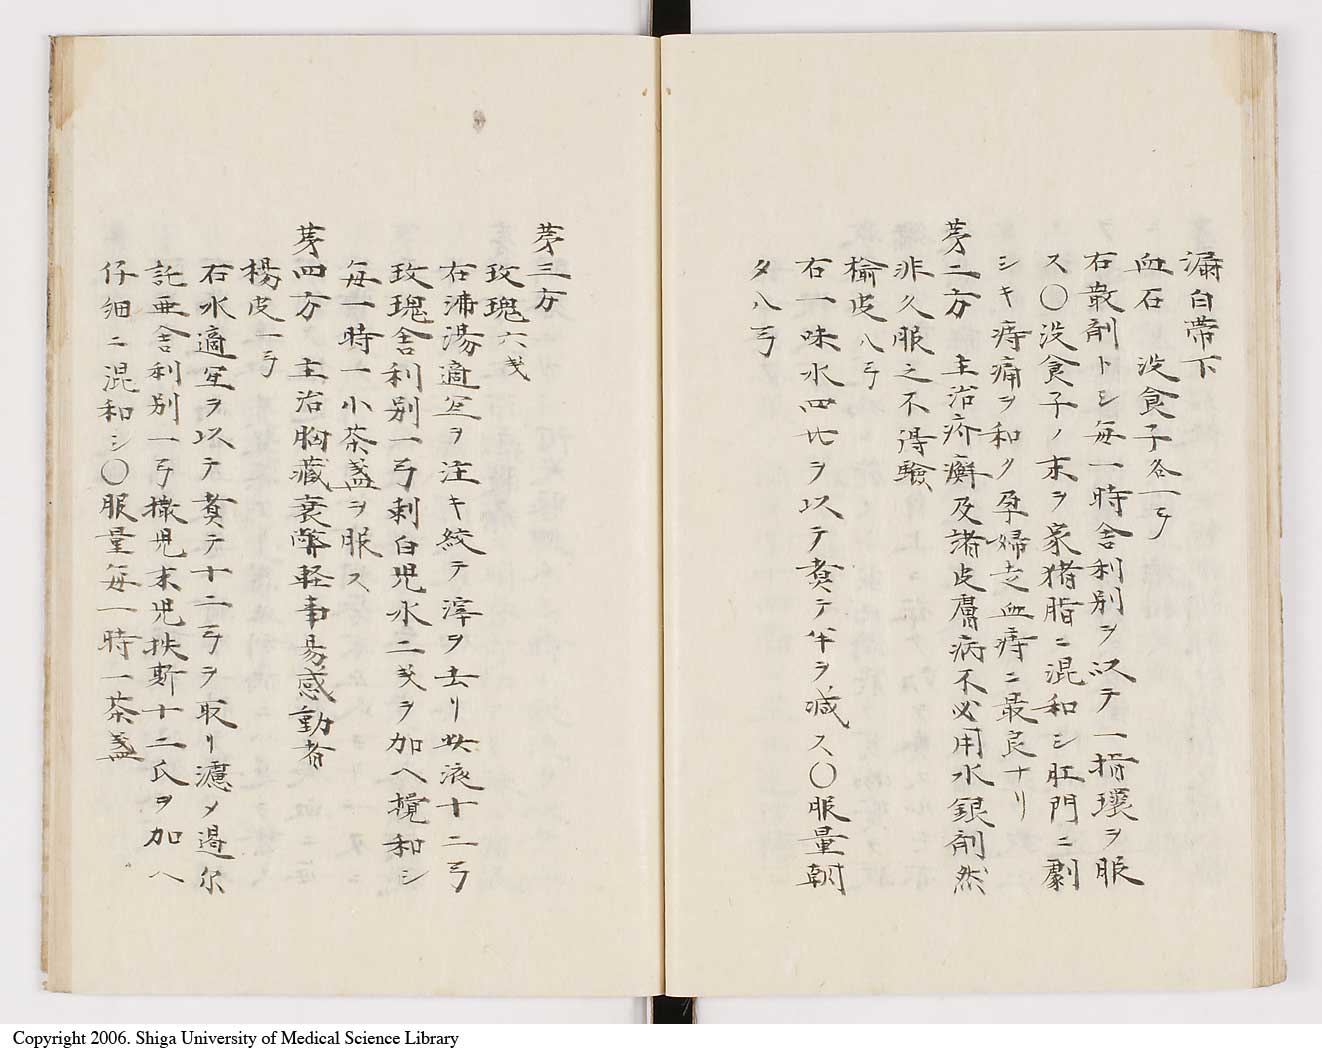 漏白帯下
血石　没食子各一弓
右散剤トシ毎一時舎利別ヲ以テ一揩瓌ヲ服
ス〇没食子ノ末ヲ家猪脂ニ混和シ肛門ニ劇
シキ痔痛ヲ和ク孕婦之血痔ニ最良ナリ
㐧二方　主治疥癬及諸皮膚病不必用水銀剤然
非久服之不得驗
楡皮八弓
右一味水四比ヲ以テ煑テ半ヲ減ス〇服量朝
夕八弓
㐧三方
玫瑰六戔
右沸湯適宜ヲ注キ絞テ滓ヲ去リ此液十二弓
玫瑰舎利別一弓剌白児水二戔ヲ加ヘ攪和シ
毎一時一小茶盞ヲ服ス
㐧四方　主治胸藏衰弊軽事易感動者
楊皮一弓
右水適宜ヲ以テ煑テ十二弓ヲ取リ濾メ過尓
託亜舎利別一弓撒児末児扶斯十二氏ヲ加ヘ
仔細ニ混和シ〇服量毎一時一茶盞
Copyright 2006. Shiga University of Medical Science Library